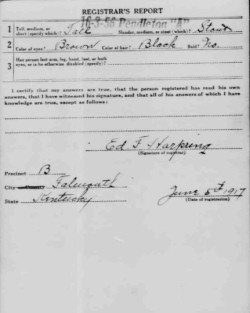 REGISTRAR'S REPORT
16-3-56 Pendleton "A"
1 Tall, medium, or short (specify which)? Tall Slender, medium, or stout (which)? Stout
2 Color of eyes? Brown Color of hair? Black Bald? No.
3 Has person lost arm, leg, hand, foot, or both eyes, or is he otherwise disabled (specify)?
I certify that my answers are true, that the person registered has read his own answers, that I have witnessed his signature, and that all of his answers of which I have knowledge are true, except as follows:
Ed F Harpring
(Signature of registrar)
Precinct B
City Falmouth
State Kentucky
June 5th 1917
(Date of registration)